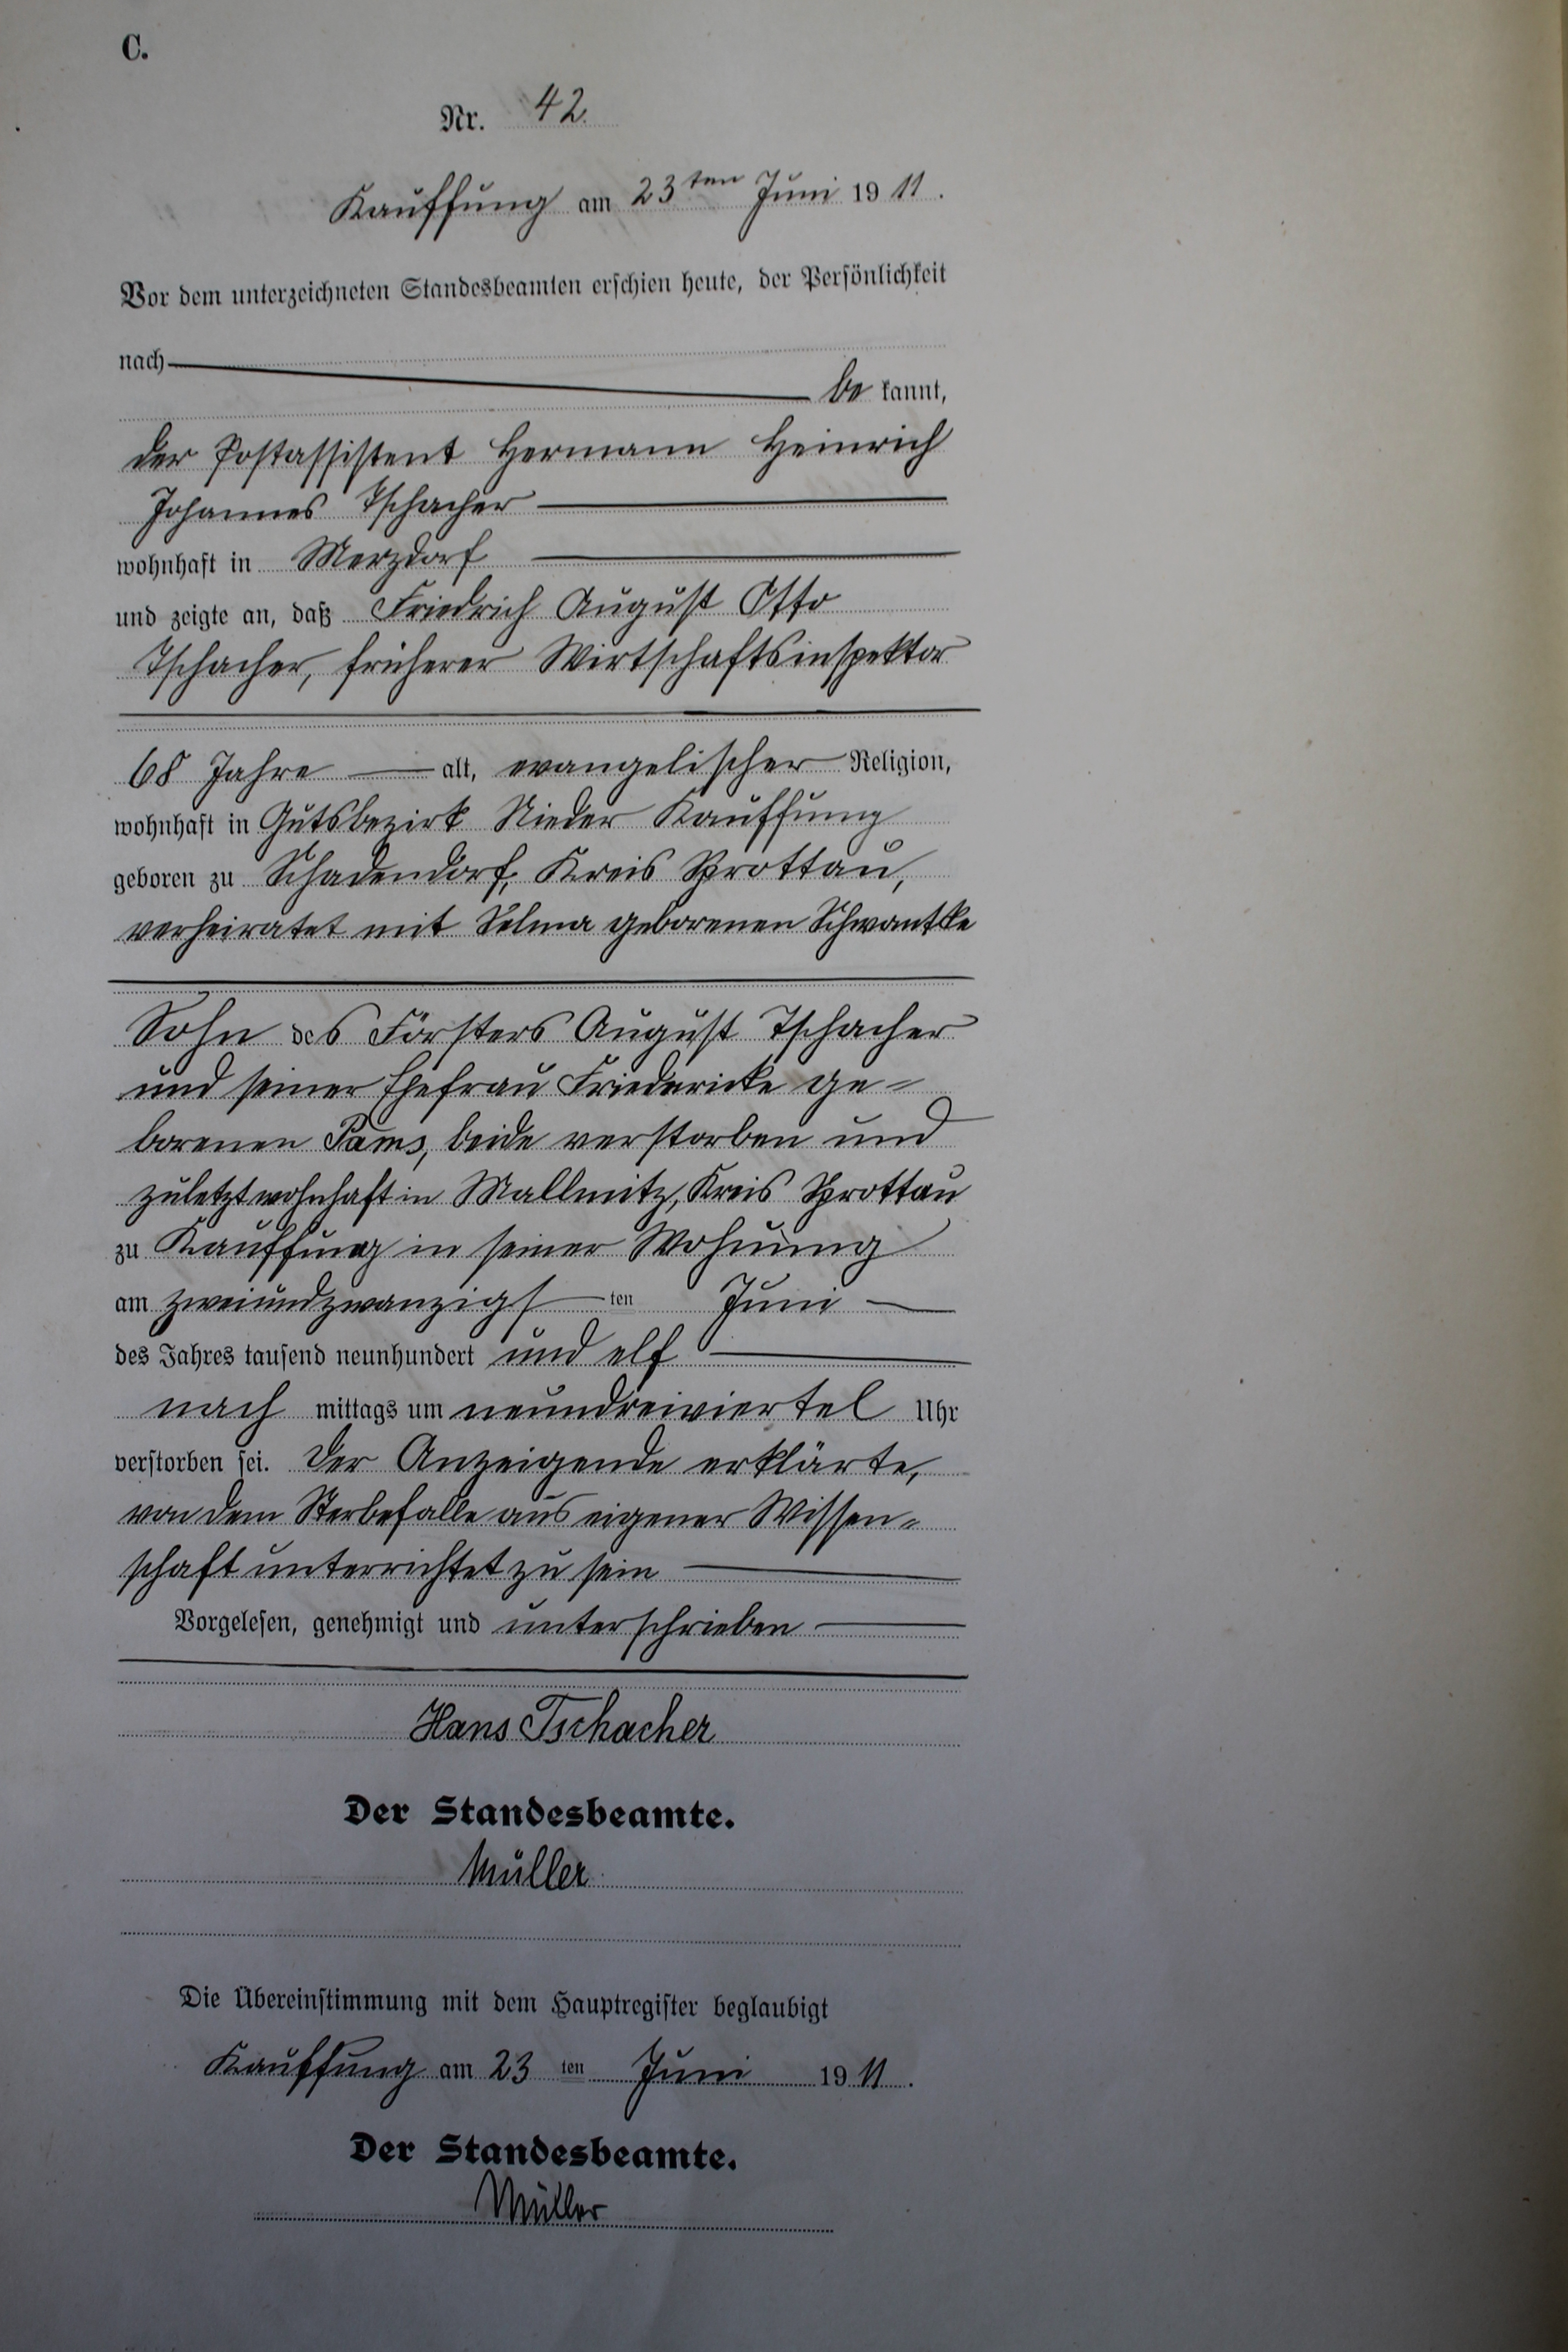 C.
Nr. 42.
Kauffung am 23ten Juni 1911.
Vor dem unterzeichneten Standesbeamten erschien heute, der Persönlichkeit
nach
be kannt,
der Postassistent Hermann Heinrich
Johannes Tschacher
wohnhaft in Merzdorf
und zeigte an, daß Friedrich August Otto
Tschacher, früherer Wirtschaftsinspektor
68 Jahre alt, evangelischer Religion,
wohnhaft in Gutsbezirk Nieder Kauffung
geboren zu Schadendorf, Kreis Sprottau,
verheiratet mit Selma geborenen Schwantke
Sohn des Försters August Tschacher
und seiner Ehefrau Friedericke ge-
borenen Pams, beide verstorben und
zuletzt wohnhaft in Mallmitz, Kreis Sprottau
zu Kauffung in seiner Wohnung
am zweiundzwanzigsten Juni
des Jahres tausend neunhundert und elf
nach mittags um neundreiviertel Uhr
verstorben sei. Der Anzeigende erklärte,
von dem Sterbefalle aus eigener Wissen-
schaft unterrichtet zu sein
Vorgelesen, genehmigt und unterschrieben
Hans Tschacher
Der Standesbeamte.
Müller
Die Übereinstimmung mit dem Hauptregister beglaubigt
Kauffung am 23ten Juni 1911.
Der Standesbeamte.
Müller